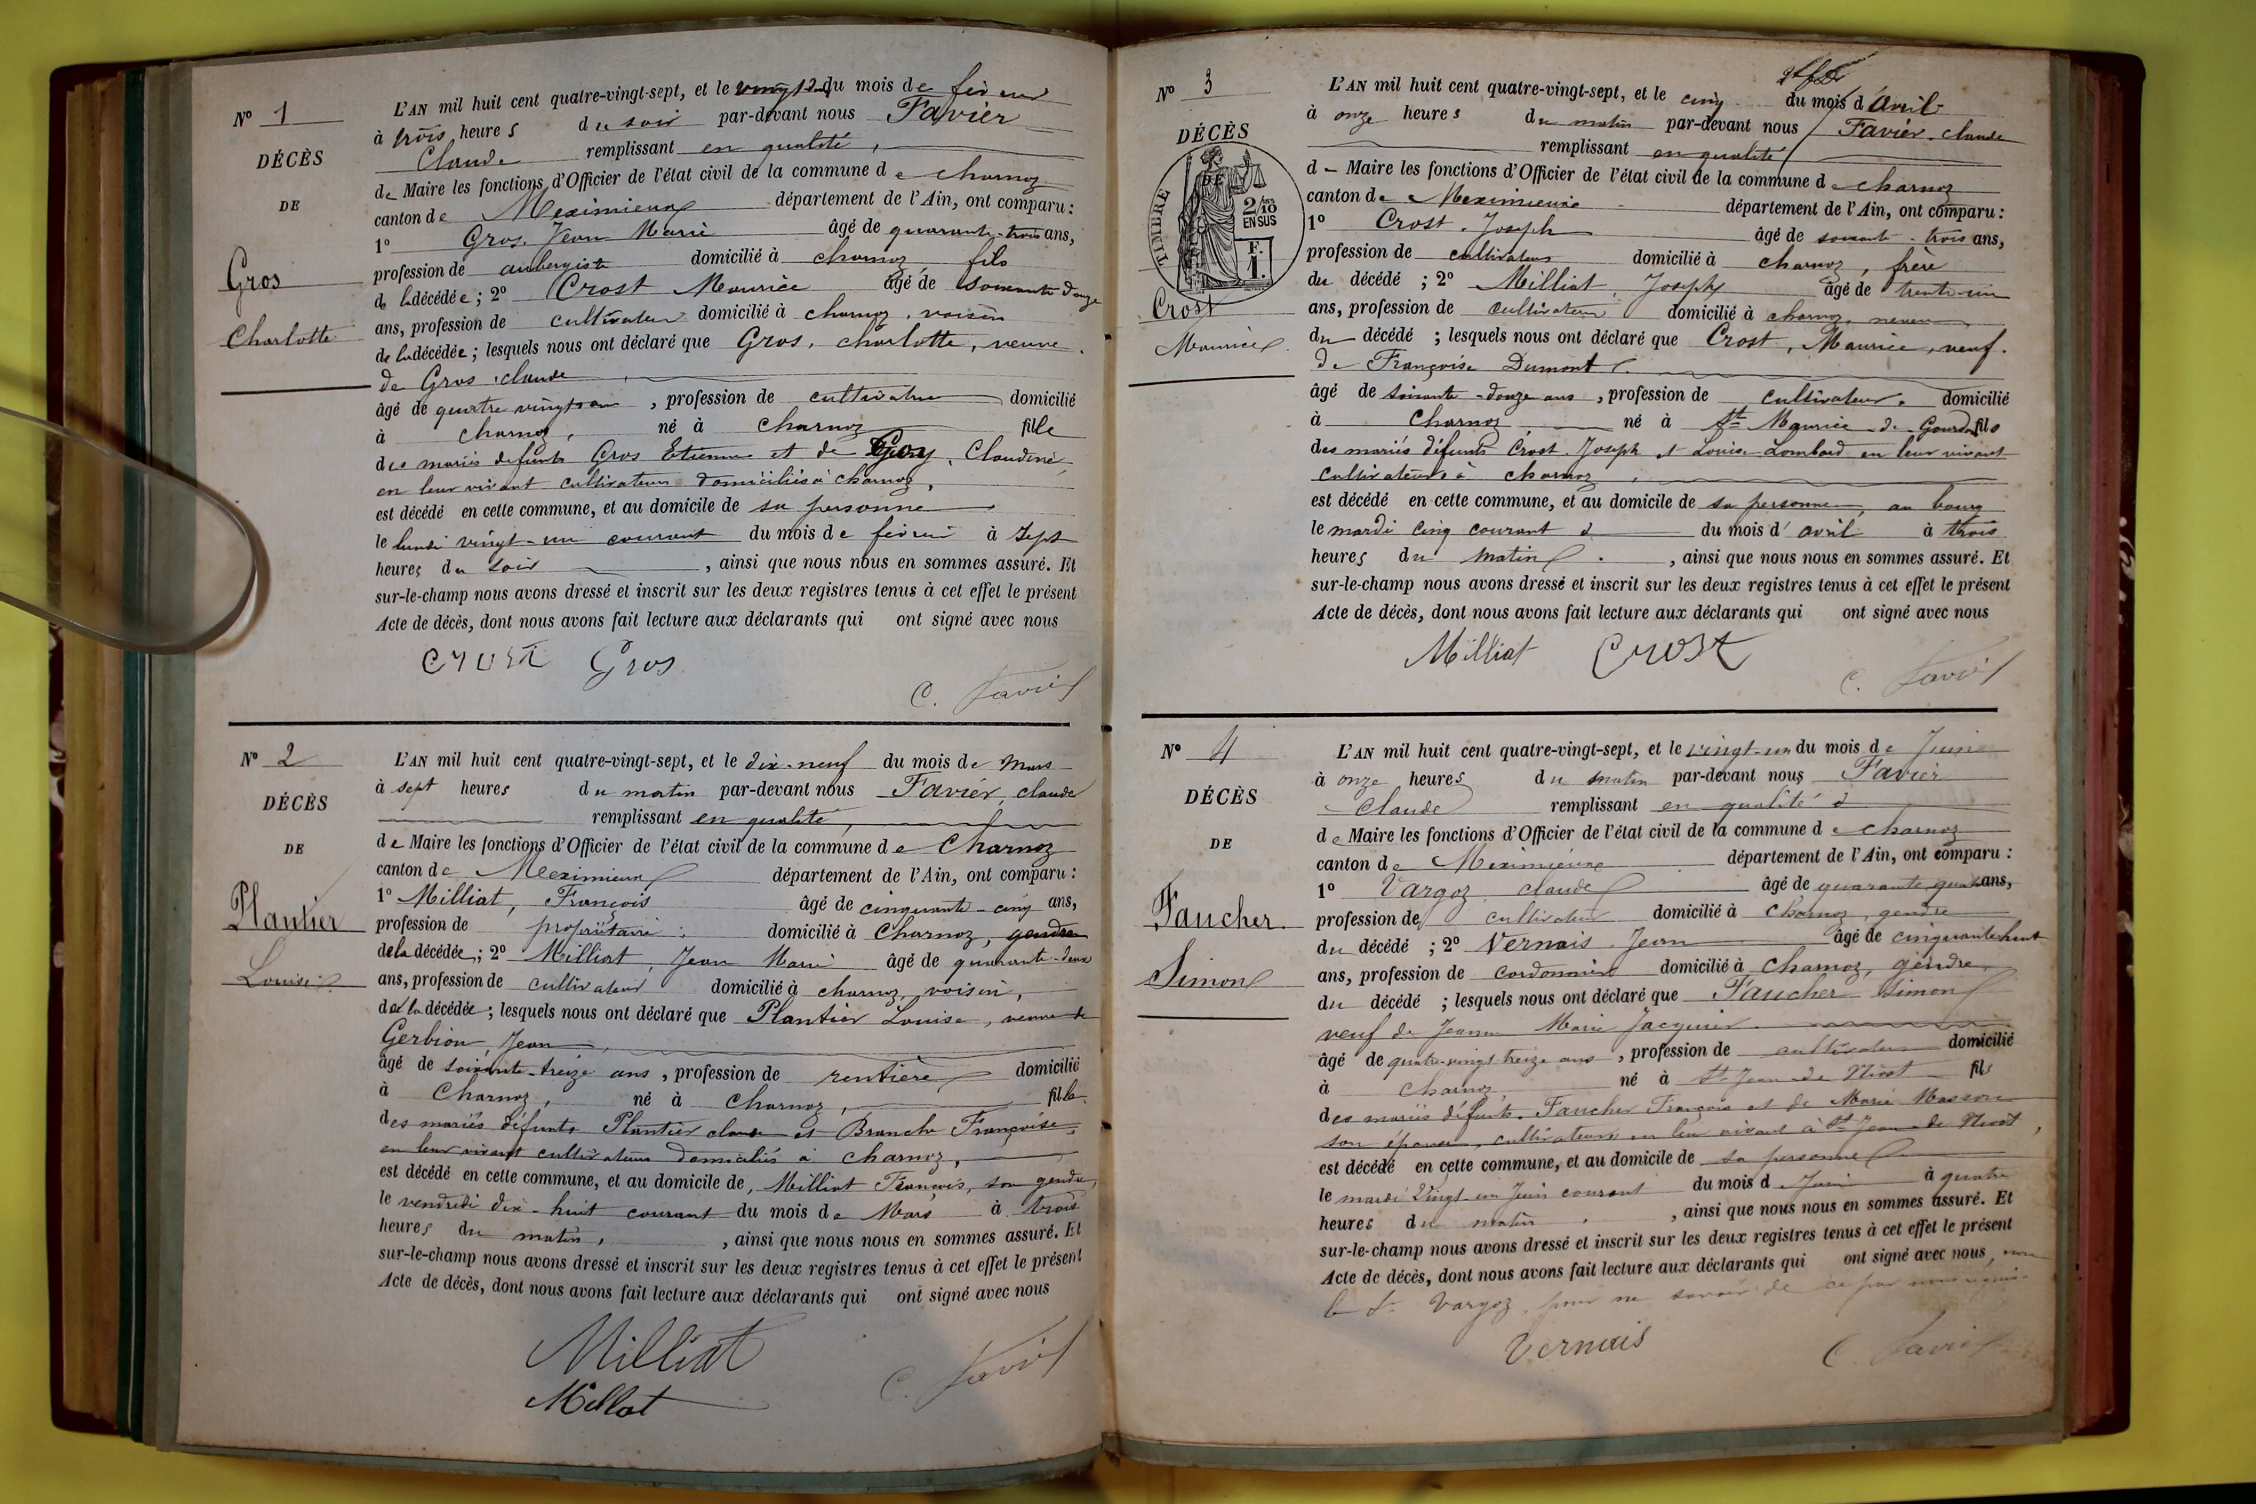 N° 1
DÉCÈS
DE
Gros
Charlotte
L'AN mil huit cent quatre-vingt-sept, et le vingt 2 du mois de février
à trois heures du soir par-devant nous Favier
Claude remplissant en qualité,
de Maire les fonctions d'Officier de l'état civil de la commune de Charnoz
canton de Meximieux département de l'Ain, ont comparu :
1° Gros, Jean Marie âgé de quarante-trois ans,
profession de aubergiste domicilié à charnoz fils
de la décédée ; 2° Crost Maurice âgé de soixante douze
ans, profession de cultivateur domicilié à charnoz, voisin
de la décédée ; lesquels nous ont déclaré que Gros, charlotte, veuve
de Gros, claude
âgé de quatre vingt un , profession de cultivateur domicilié
à charnoz, né à charnoz fille
des mariés défunts Gros Etienne et de Goy, Claudine,
en leur vivant cultivateurs domiciliés à charnoz,
est décédé en cette commune, et au domicile de sa personne
le lundi vingt-un courant du mois de février à sept
heures du soir , ainsi que nous nous en sommes assuré. Et
sur-le-champ nous avons dressé et inscrit sur les deux registres tenus à cet effet le présent
Acte de décès, dont nous avons fait lecture aux déclarants qui ont signé avec nous
Crost Gros
C. Favier
N° 2
DÉCÈS
DE
Plantier
Louise
L'AN mil huit cent quatre-vingt-sept, et le dix-neuf du mois de Mars
à sept heures du matin par-devant nous Favier, claude
remplissant en qualité,
de Maire les fonctions d'Officier de l'état civil de la commune de Charnoz
canton de Meximieux département de l'Ain, ont comparu :
1° Milliat, François âgé de cinquante-cinq ans,
profession de propriétaire domicilié à Charnoz, gendre
de la décédée ; 2° Milliat, Jean Marie âgé de quarante-deux
ans, profession de cultivateur domicilié à charnoz, voisin,
de la décédée ; lesquels nous ont déclaré que Plantier Louise, veuve de
Gerbion, Jean
âgé de soixante-treize ans, profession de rentière domicilié
à Charnoz, né à Charnoz, fille
des mariés défunts Plantier claude et Branche Françoise,
en leur vivant cultivateurs domiciliés à charnoz,
est décédé en cette commune, et au domicile de, Milliat François, son gendre,
le vendredi dix-huit courant du mois de Mars à trois
heures du matin, , ainsi que nous nous en sommes assuré. Et
sur-le-champ nous avons dressé et inscrit sur les deux registres tenus à cet effet le présent
Acte de décès, dont nous avons fait lecture aux déclarants qui ont signé avec nous
Milliat
Millat
C. Favier
N° 3
DÉCÈS
DE
TIMBRE
2/10 EN SUS
F. 1.
Crost
Maurice
L'AN mil huit cent quatre-vingt-sept, et le cinq du mois d'avril
à onze heures du matin par-devant nous Favier, claude
remplissant en qualité
d Maire les fonctions d'Officier de l'état civil de la commune de charnoz
canton de Meximieux département de l'Ain, ont comparu :
1° Crost, Joseph âgé de soixante-trois ans,
profession de cultivateur domicilié à charnoz, frère
du décédé ; 2° Milliat, Joseph âgé de trente-un
ans, profession de cultivateur domicilié à charnoz, neveu
du décédé ; lesquels nous ont déclaré que Crost, Maurice, veuf
de Françoise Dumont
âgé de soixante-douze ans, profession de cultivateur, domicilié
à Charnoz, né à St Maurice de Gourdans fils
des mariés défunts Crost Joseph et Louise Lombard en leur vivant
cultivateurs à charnoz,
est décédé en cette commune, et au domicile de sa personne, au bourg
le mardi cinq courant du mois d'avril à trois
heures du matin , ainsi que nous nous en sommes assuré. Et
sur-le-champ nous avons dressé et inscrit sur les deux registres tenus à cet effet le présent
Acte de décès, dont nous avons fait lecture aux déclarants qui ont signé avec nous
Milliat Crost
C. Favier
N° 4
DÉCÈS
DE
Faucher
Simon
L'AN mil huit cent quatre-vingt-sept, et le vingt-un du mois de Juin
à onze heures du matin par-devant nous Favier
Claude remplissant en qualité
de Maire les fonctions d'Officier de l'état civil de la commune de charnoz
canton de Meximieux département de l'Ain, ont comparu :
1° Vargoz claude âgé de quarante quatre ans,
profession de cultivateur domicilié à Charnoz, gendre
du décédé ; 2° Vernais Jean âgé de cinquante huit
ans, profession de cordonnier domicilié à Charnoz, gendre
du décédé ; lesquels nous ont déclaré que Faucher Simon
veuf de Jeanne Marie Jacquier
âgé de quatre-vingt treize ans, profession de cultivateur domicilié
à Charnoz, né à St Jean de Niost fils
des mariés défunts Faucher François et de Marie Masson
son épouse, cultivateurs en leur vivant à St Jean de Niost,
est décédé en cette commune, et au domicile de sa personne
le mardi vingt-un Juin courant du mois d Juin à quatre
heures du matin , ainsi que nous nous en sommes assuré. Et
sur-le-champ nous avons dressé et inscrit sur les deux registres tenus à cet effet le présent
Acte de décès, dont nous avons fait lecture aux déclarants qui ont signé avec nous, non
le Sr Vargoz, pour ne savoir de ce par nous requis
Vernais
C. Favier